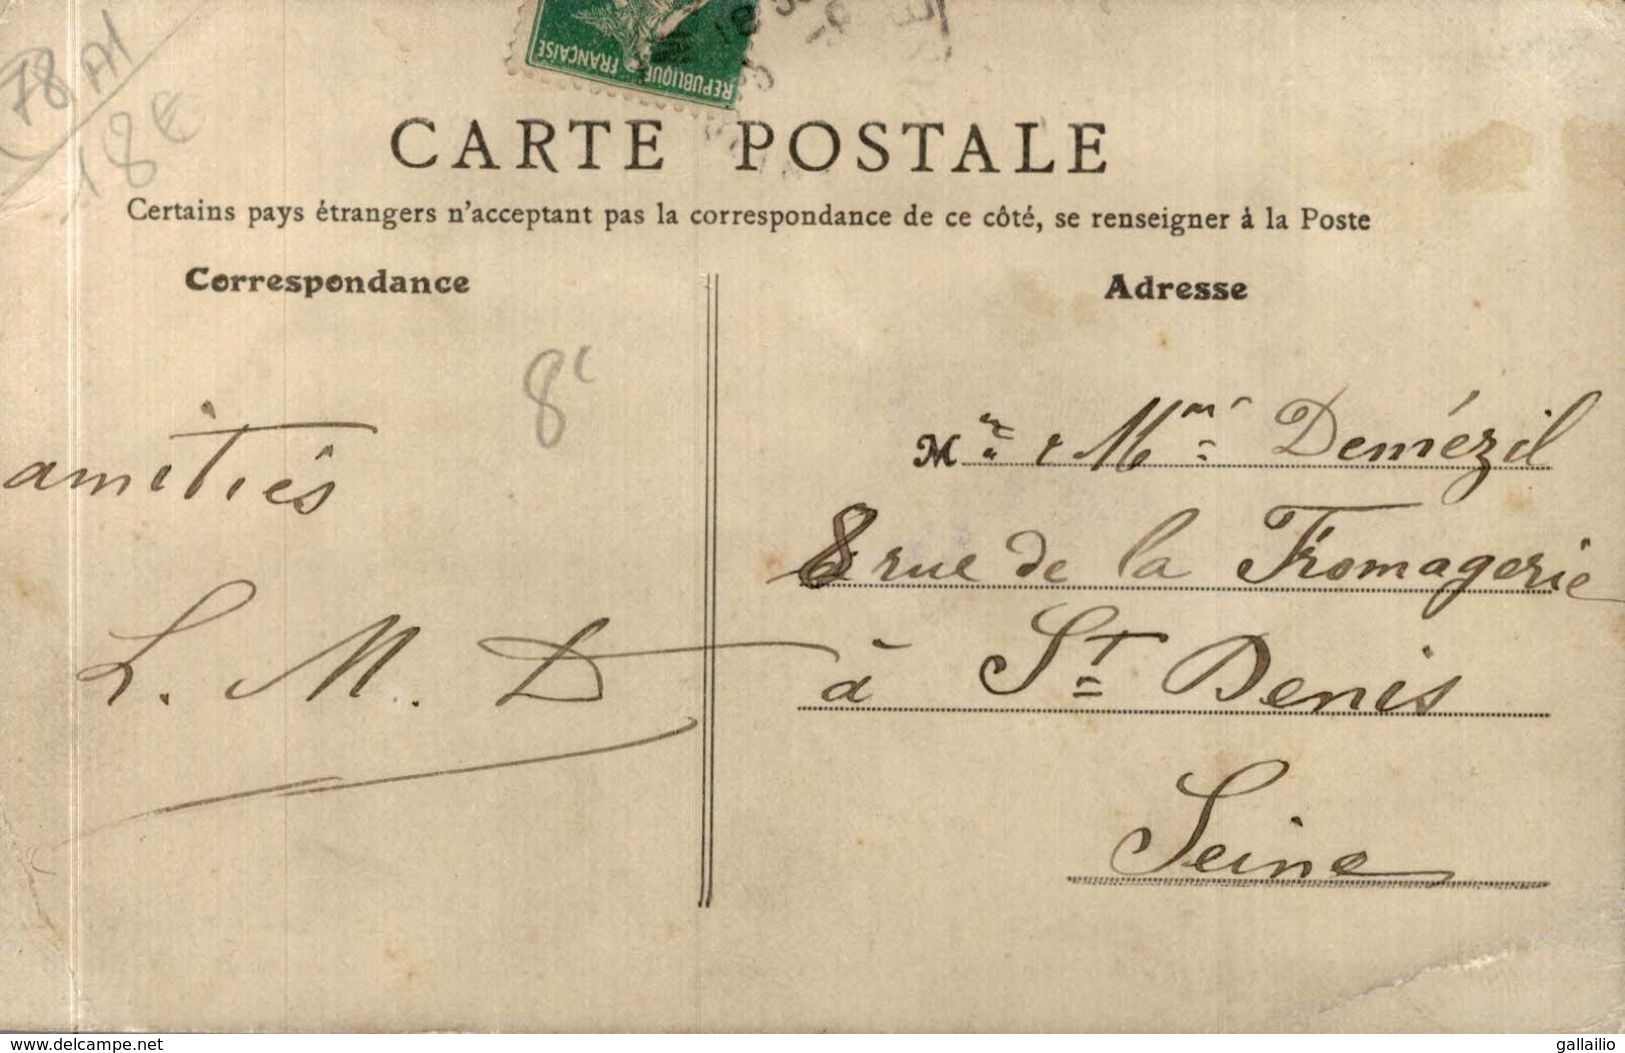 78 A1
18€
REPUBLIQUE FRANÇAISE
CARTE POSTALE
Certains pays étrangers n'acceptant pas la correspondance de ce côté, se renseigner à la Poste
Correspondance
Adresse
8
amitiés
L. M. D
Mr & Mme Demézil
8 rue de la Fromagerie
à St Denis
Seine
www.delcampe.net
gallailio